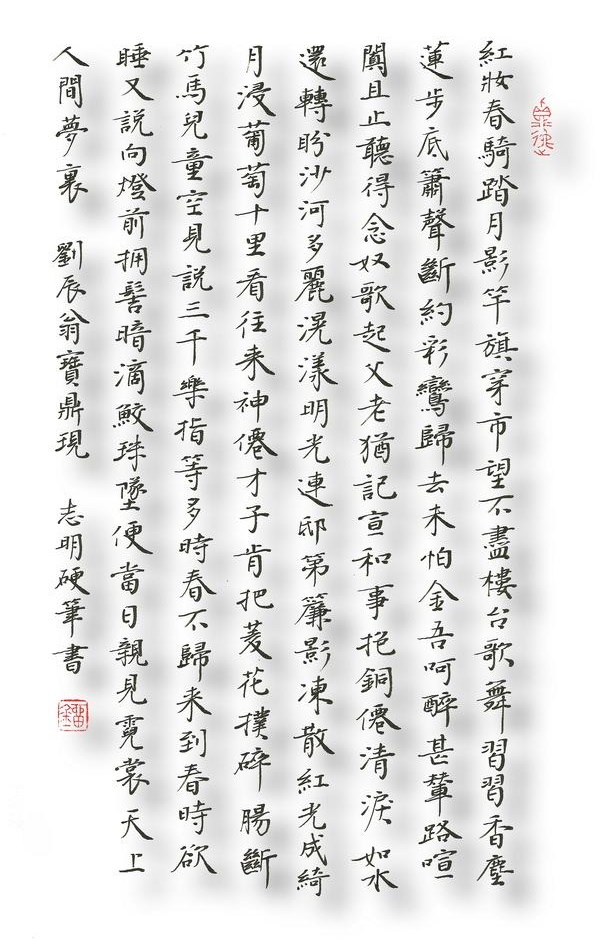 紅妝春騎踏月影竿旗穿市望不盡樓台歌舞習習香塵
蓮步底簫聲斷約彩鸞歸去未怕金吾呵醉甚輦路喧
闐且止聽得念奴歌起父老猶記宣和事抱銅僊清淚如水
還轉盼沙河多麗滉漾明光連邸第簾影凍散紅光成綺
月浸葡萄十里看往来神僊才子肯把菱花撲碎腸斷
竹馬兒童空見説三千樂指等多時春不歸来到春時欲
睡又説向燈前拥髻暗滴鮫珠墜便當日親見霓裳天上
人間夢裏 劉辰翁寶鼎現 志明硬筆書